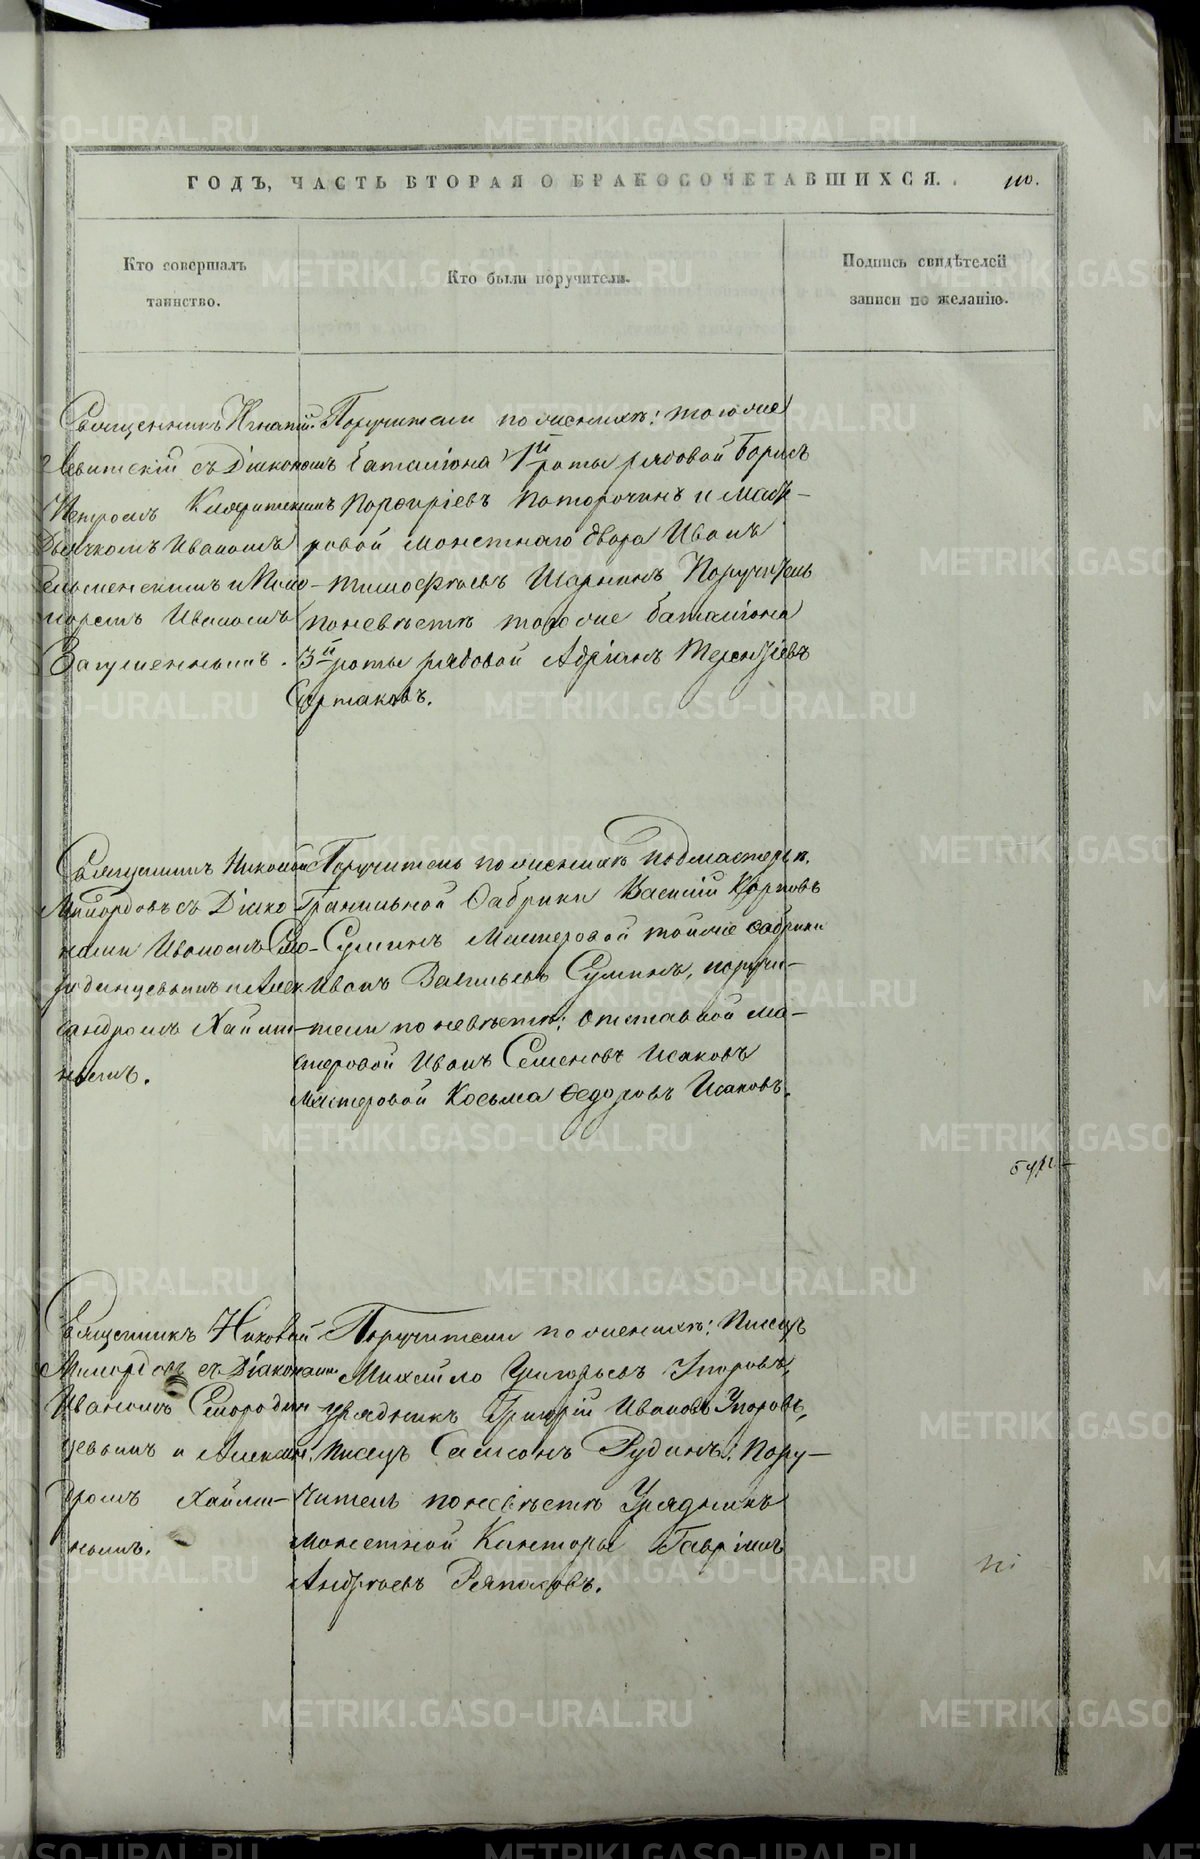 ГОДЪ, ЧАСТЬ ВТОРАЯ О БРАКОСОЧЕТАВШИХСЯ.
Кто совершалъ таинство.
Кто были поручители.
Подпись свидѣтелей записи по желанію.
Священникъ Игнатій
Левитскій съ Діакономъ
Петромъ
Дьячкомъ Иваномъ
и Поно-
маремъ Иваномъ
Поручители по женихѣ: тогоже
баталіона 1й роты рядовой Борисъ
Порфиріевъ Поторочинъ и Масте-
ровой монетнаго двора Иванъ
Тимофѣевъ Шарнинъ Поручитель
по невѣстѣ тогоже баталіона
3й роты рядовой Адріанъ Терентіевъ
Сартаковъ.
Священникъ Николай
Миłордовъ съ Діако-
нами Иваномъ Смо-
родинцевымъ и Алек-
сандромъ Хайми-
нымъ.
Поручители по женихѣ подмастерье
Гранильной Фабрики Василій Карповъ
Суминъ Мастеровой тойже фабрики
Иванъ Васильевъ Суминъ, поручи-
тели по невѣстѣ: отставной ма-
стеровой Иванъ Семеновъ Исаковъ
Мастеровой Косьма Ѳедоровъ Исаковъ.
Священникъ Николай
съ Діаконами
Иваномъ Смородин-
цевымъ и Алексан-
дромъ Хайми-
нымъ.
Поручители по женихѣ: Писецъ
Михайло Григорьевъ Упоровъ,
Урядникъ Григорій Ивановъ Упоровъ,
писецъ Самсонъ Рудинъ: Пору-
читель по невѣстѣ Урядникъ
монетной Канторы Гавріилъ
Андреевъ Ряпасовъ.
METRIKI.GASO-URAL.RU